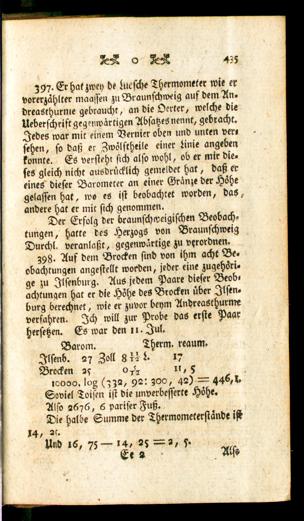 o 435
397. Er hat zwey de Lucsche Thermometer wie er
vorerzählter maassen zu Braunschweig auf dem An-
dreasthurme gebraucht, an die Oerter, welche die
Ueberschrift gegenwärtigen Absatzes nennt, gebracht.
Jedes war mit einem Vernier oben und unten ver-
sehen, so daß er Zwölftheile einer Linie angeben
konnte. Es versteht sich also wohl, ob er mir die-
ses gleich nicht ausdrücklich gemeldet hat, daß er
eines dieser Barometer an einer Gränze der Höhe
gelassen hat, wo es ist beobachtet worden, das
andere hat er mit sich genommen.
Der Erfolg der braunschweigischen Beobach-
tungen, hatte des Herzogs von Braunschweig
Durchl. veranlaßt, gegenwärtige zu verordnen.
398. Auf dem Brocken sind von ihm acht Be-
obachtungen angestellt worden, jeder eine zugehöri-
ge zu Ilsenburg. Aus jedem Paare dieser Beob-
achtungen hat er die Höhe des Brocken über Ilsen-
burg berechnet, wie er zuvor beym Andreasthurme
verfahren. Ich will zur Probe das erste Paar
hersetzen. Es war den 11. Jul.
Barom. Therm. reaum.
Ilsenb. 27 Zoll 8 11/12 L. 17
Brocken 25 11, 5
10000. log (332, 92: 300, 42) = 446, 1.
Soviel Toisen ist die unverbesserte Höhe.
Also 2676, 6 pariser Fuß.
Die halbe Summe der Thermometerstände ist
14, 25.
Und 16, 75 — 14, 25 = 2, 5.
Ee 2 Also